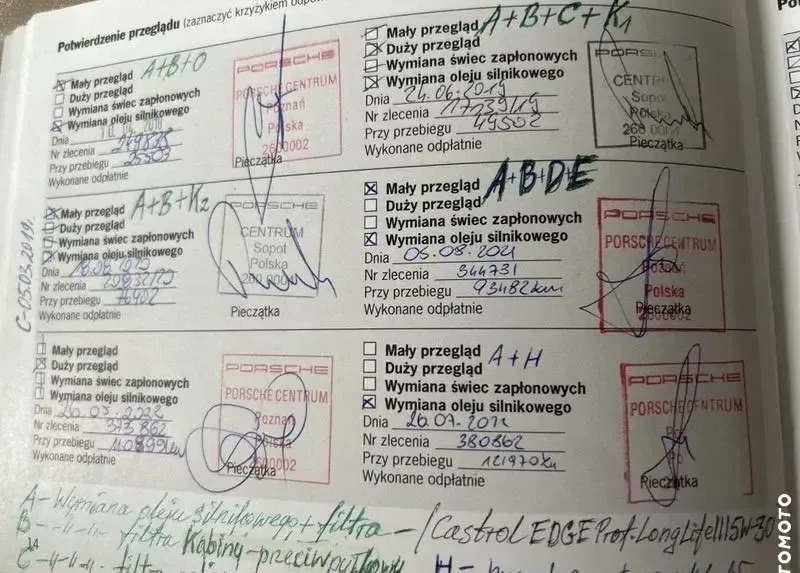 Potwierdzenie przeglądu (zaznaczyć krzyżykiem
Mały przegląd A+B+O
Duży przegląd
Wymiana świec zapłonowych
Wymiana oleju silnikowego
Dnia
Nr zlecenia
Przy przebiegu 25503
Wykonane odpłatnie
PORSCHE
PORSCHE CENTRUM
Poznań
Polska
2600002
Pieczątka
Mały przegląd A+B+C+K1
Duży przegląd
Wymiana świec zapłonowych
Wymiana oleju silnikowego
Dnia 24.06.2019
Nr zlecenia 17339/19
Przy przebiegu 49502
Wykonane odpłatnie
PORSCHE
CENTRUM
Sopot
Polska
Pieczątka
C-05.03.2019.
Mały przegląd A+B+K2
Duży przegląd
Wymiana świec zapłonowych
Wymiana oleju silnikowego
Dnia
Nr zlecenia
Przy przebiegu 76902
Wykonane odpłatnie
PORSCHE
CENTRUM
Sopot
Polska
Pieczątka
Mały przegląd A+B+D+E
Duży przegląd
Wymiana świec zapłonowych
Wymiana oleju silnikowego
Dnia 05.08.2021
Nr zlecenia 344731
Przy przebiegu 93482km
Wykonane odpłatnie
PORSCHE
PORSCHE CENTRUM
Poznań
Polska
2600002
Pieczątka
Mały przegląd
Duży przegląd
Wymiana świec zapłonowych
Wymiana oleju silnikowego
Dnia 26.05.2022
Nr zlecenia 373862
Przy przebiegu 110899km
Wykonane odpłatnie
PORSCHE
PORSCHE CENTRUM
Poznań
Polska
2600002
Pieczątka
Mały przegląd A+H
Duży przegląd
Wymiana świec zapłonowych
Wymiana oleju silnikowego
Dnia 26.07.2022
Nr zlecenia 380862
Przy przebiegu 121970km
Wykonane odpłatnie
PORSCHE
PORSCHE CENTRUM
Pieczątka
A-Wymiana oleju silnikowego+filtra-/Castrol EDGE Prof. Longlife III 5W-30
B-11-11- filtra Kabiny-przeciwpyłkowy
14
C-11-11- filtra
H-
OTOMOTO